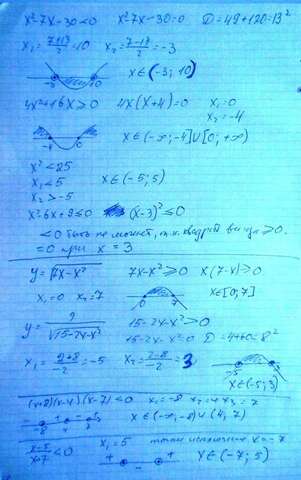 x²-7x-30<0 x²-7x-30=0 D=49+120=13²
x₁=(7+13)/2=10 x₂=(7-13)/2=-3
-3 10 x∈(-3; 10)
4x²+16x≥0 4x(x+4)=0 x₁=0
x₂=-4
-4 0 x∈(-∞;-4]∪[0;+∞)
x²<25
x₁<5 x∈(-5; 5)
x₂>-5
x²-6x+9≤0 (x-3)²≤0
<0 быть не может, т.к. квадрат всегда ≥0.
=0 при x=3
y=√(7x-x²) 7x-x²≥0 x(7-x)≥0
x₁=0 x₂=7 0 7 x∈[0;7]
y=2/√(15-2x-x²) 15-2x-x²>0
15-2x-x²=0 D=4+60=8²
x₁=(2+8)/-2=-5 x₂=(2-8)/-2=3 -5 3
x∈(-5;3)
(x+8)(x-4)(x-7)<0 x₁=-8 x₂=4 x₃=7
- + - + x∈(-∞;-8)∪(4;7)
(x-5)/(x+7)<0 x₁=5 точка исключения x=-7
+ - + x∈(-7; 5)